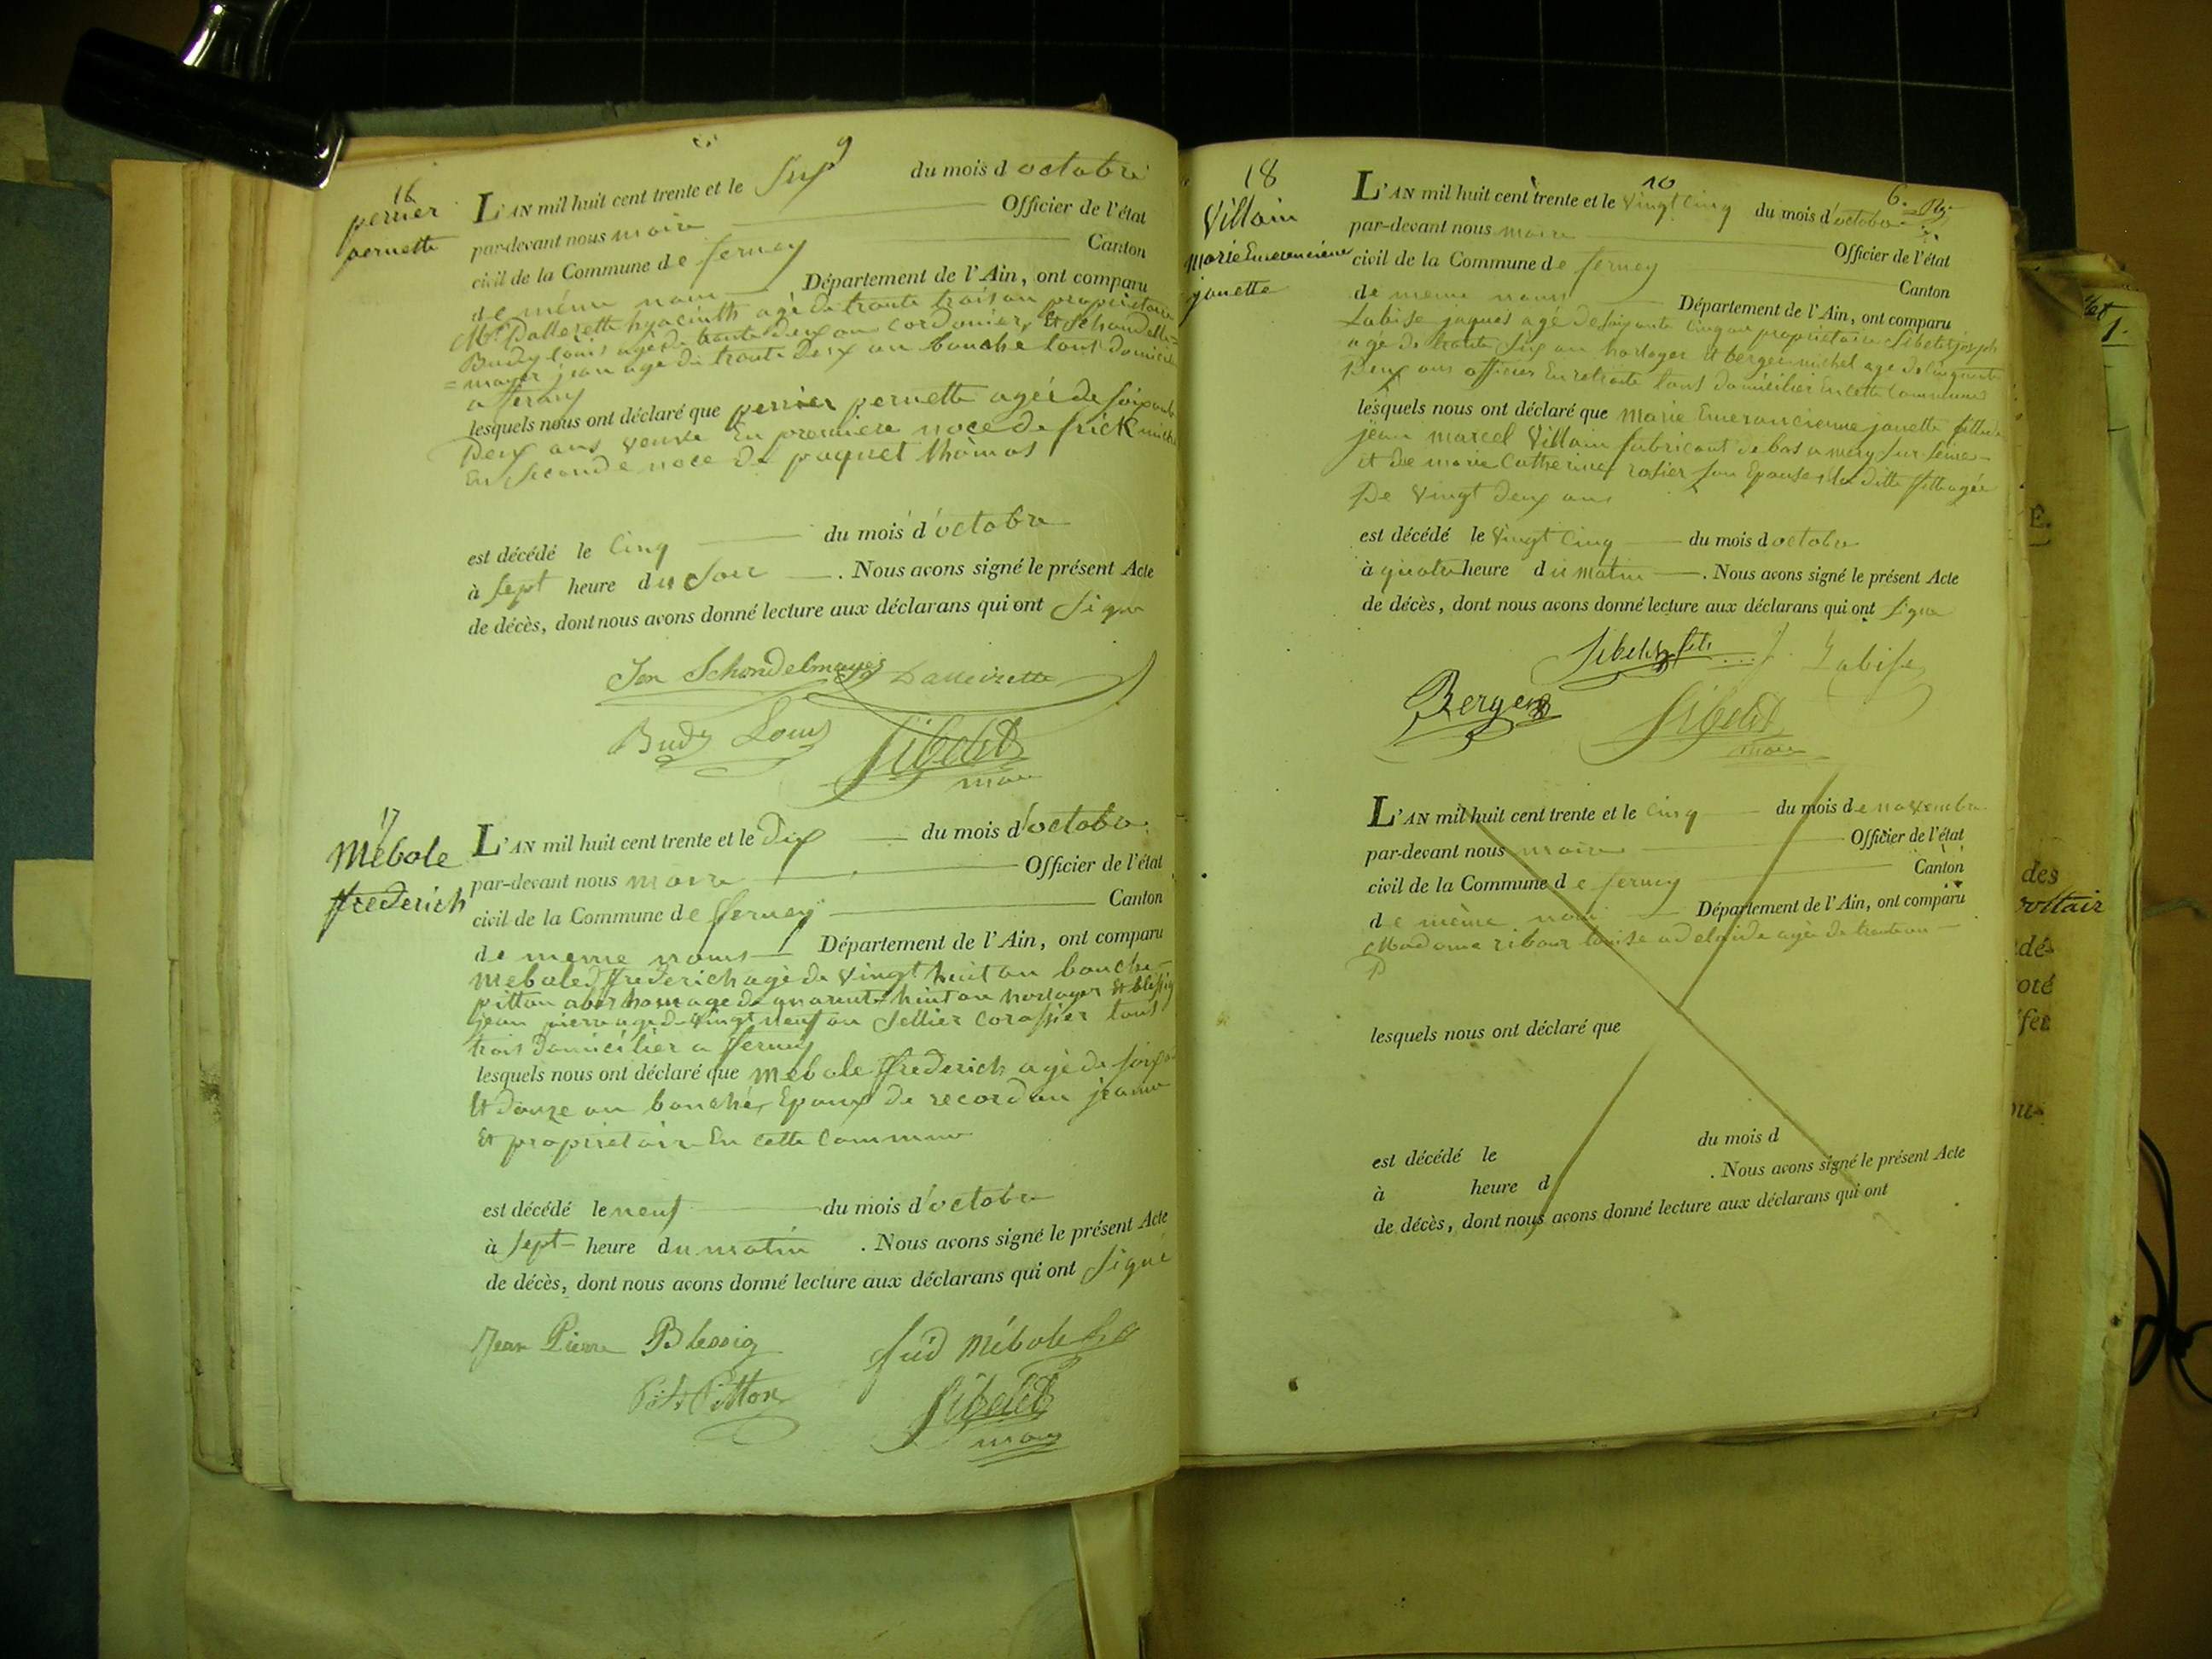 9
16
perrier
pernette
L'AN mil huit cent trente et le six du mois d octobre
par-devant nous maire Officier de l'état
civil de la Commune de ferney Canton
de même nom Département de l'Ain, ont comparu
Mr Dallezette hyacinth agé de trante trois an propriétaire
Budy louis agé de trante deux an cordonier, Et Schandelle=
=mayer jean agé de trante deux an bouché tous domicilié
a ferney
lesquels nous ont déclaré que perrier pernette ageé de soixante
Deux ans veuve En premiere noce de frick
En Seconde noce de paquet thomas
est décédé le Cinq du mois d'octobre
à Sept heure du Soir . Nous avons signé le présent Acte
de décès, dont nous avons donné lecture aux déclarans qui ont Signé
Jen Schondelmayer
Budy Louis Sibelet
maire
17
Mébole
frederich
L'AN mil huit cent trente et le Dix du mois d'octobre
par-devant nous maire Officier de l'état
civil de la Commune de ferney Canton
de meme nom Département de l'Ain, ont comparu
Mebole frederich agé de vingt huit an bouché
pitton agé de quarente huit an horloger Et blessig
jean pierre agé de vingt neuf an Sellier tous
trois domicilier a ferney
lesquels nous ont déclaré que mebole frederich agé de soixante
Et douze an bouché, Epoux de recordon jeanne
Et propriétaire En cette Commune
est décédé le neuf du mois d'octobre
à Sept heure du matin . Nous avons signé le présent Acte
de décès, dont nous avons donné lecture aux déclarans qui ont Signé
Jean Pierre Blessig fréd Mébole
Pitton Sibelet
maire
10
6.
18
Villain
Marie Emerencienne
janette
L'AN mil huit cent trente et le vingt Cinq du mois d'octobre
par-devant nous maire Officier de l'état
civil de la Commune de ferney Canton
de meme nom Département de l'Ain, ont comparu
Labise jaques agé de soixante Cinq an propriétaire Sibelet joseph
age de trante Six an horloger Et berger michel age de Cinquante
Deux ans officier En retraite tous domicilier En cette Commune
lesquels nous ont déclaré que Marie Emerancienne janette fille de
jean marcel Villain fabricant de bas a mery Sur Seine
et de marie Catherine rosier Son Epouse, la ditte fille agée
De vingt deux ans
est décédé le vingt Cinq du mois d octobre
à quatre heure du matin . Nous avons signé le présent Acte
de décès, dont nous avons donné lecture aux déclarans qui ont Signé
Sibelet fils J. Labise
Berger Sibelet
maire
L'AN mil huit cent trente et le Cinq du mois de novembre
par-devant nous maire Officier de l'état
civil de la Commune de ferney Canton
de même nom Département de l'Ain, ont comparu
Madame louise adelaide agée de trente an
lesquels nous ont déclaré que
est décédé le du mois d
à heure d . Nous avons signé le présent Acte
de décès, dont nous avons donné lecture aux déclarans qui ont
des